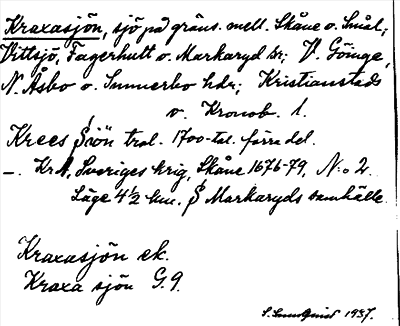 Kraxasjön, sjö på gräns. mell. Skåne o. Smål.;
Vittsjö, Fagerhult o. Markaryd sr; V. Göinge,
N. Åsbo o. Sunnerbo hdr; Kristianstads
o. Kronob. l.
Krees Siön trol. 1700-tal. förra del.
–. KrA, Sveriges krig, Skåne 1676-79, N:o 2.
Läge 4½ km. S Markaryds samhälle.
Kraxasjön ek.
Kraxa sjön G.9.
S. Sundquist 1937.